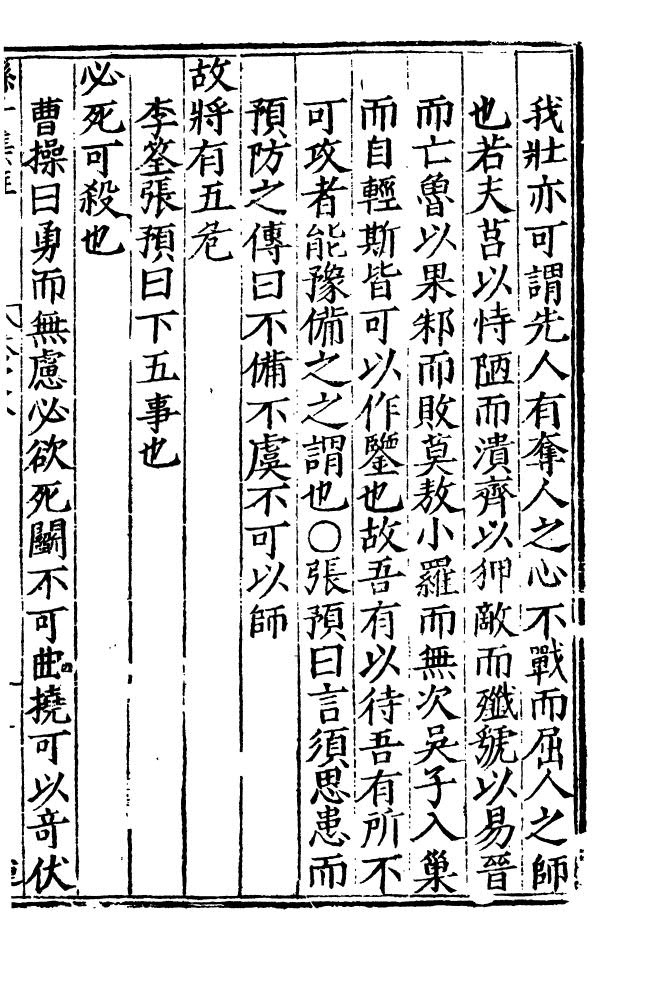 我壯亦可謂先人有奪人之心不戰而屈人之師
也若夫莒以恃陋而潰齊以狎敵而殲虢以易晉
而亡魯以果邾而敗莫敖小羅而無次吳子入巢
而自輕斯皆可以作鑒也故吾有以待吾有所不
可攻者能豫備之之謂也○張預曰言須思患而
預防之傳曰不備不虞不可以師
故將有五危
李筌張預曰下五事也
必死可殺也
曹操曰勇而無慮必欲死鬬不可曲撓可以奇伏